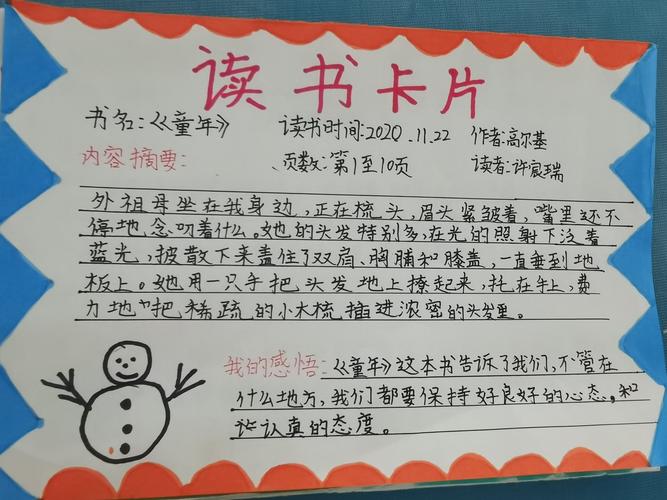 读书卡片
书名:《童年》 读书时间:2020.11.22 作者:高尔基
内容摘要: 页数:第1至10页 读者:许宸瑞
外祖母坐在我身边,正在梳头,眉头紧皱着,嘴里还不
停地念叨着什么。她的头发特别多,在光的照射下泛着
蓝光,披散下来盖住了双肩、胸脯和膝盖,一直垂到地
板上。她用一只手把头发地上撩起来,托在手上,费
力地“把稀疏的小木梳插进浓密的头发里。
我的感悟:《童年》这本书告诉了我们,不管在
什么地方,我们都要保持好良好的心态。和
认真的态度。